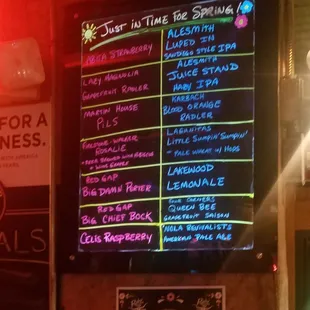 Just in Time for Spring!
Abita Strawberry
Lazy Magnolia
Grapefruit Radler
Martin House
Pils
Firestone Walker
Rosalie
Beer Brewed with
Wine Grapes
Red Gap
Big Damn Porter
Red Gap
Big Chief Bock
Celis Raspberry
Alesmith
Luped In
Sandiego Style IPA
Alesmith
Juice Stand
Hazy IPA
Karbach
Blood Orange
Radler
Lagunitas
Little Sumpin' Sumpin'
Pale Wheat w/ Hops
Lakewood
Lemonale
Four Corners
Queen Bee
Grapefruit Saison
Nola Revivalists
American Pale Ale
FOR A
NESS.
ALS